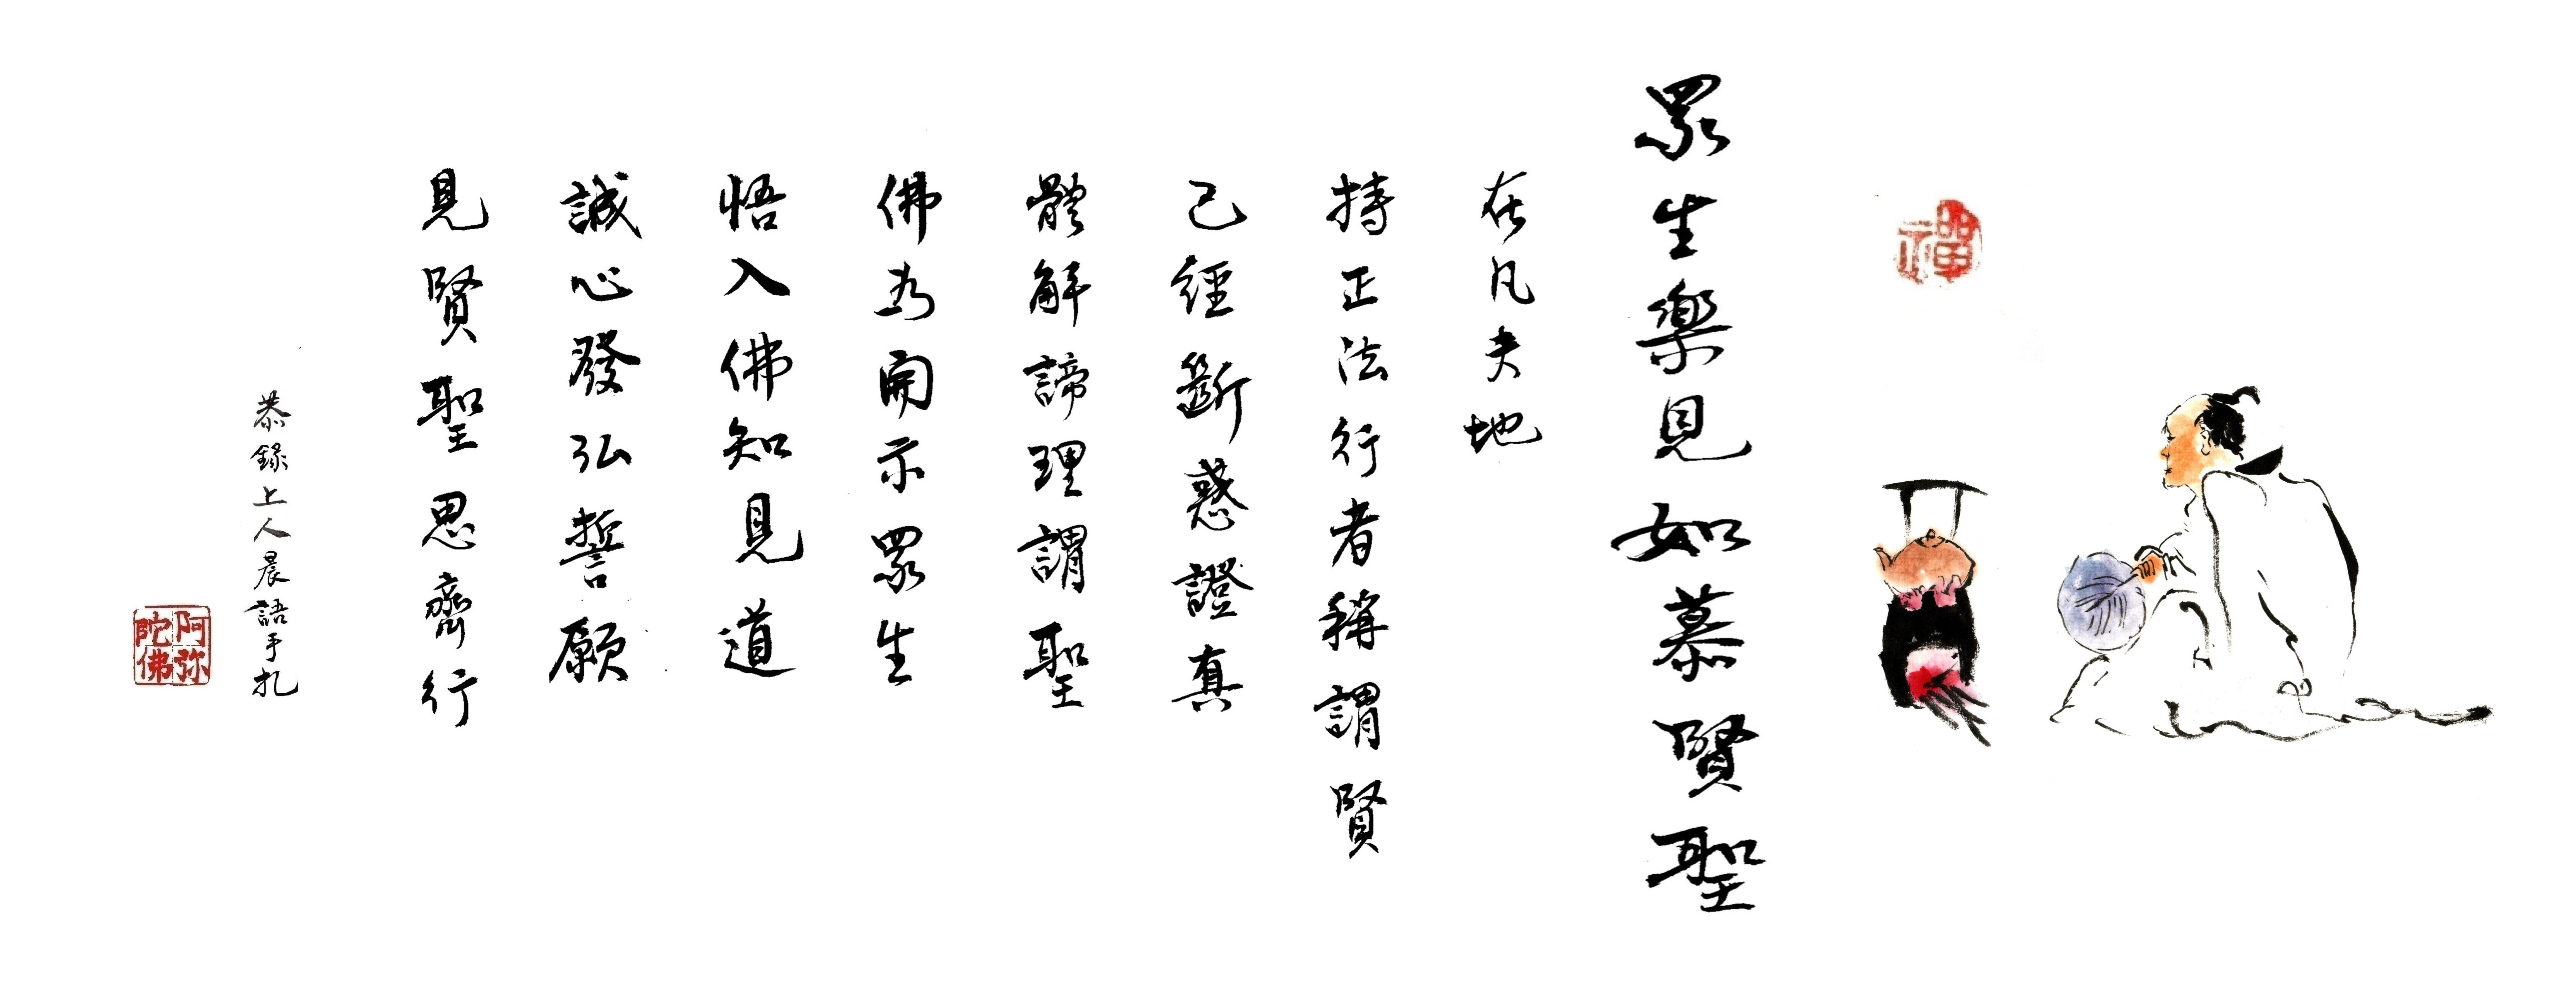 禪
眾生樂見如慕賢聖
在凡夫地
持正法行者稱謂賢
已經斷惑證真
體解諦理謂聖
佛為開示眾生
悟入佛知見道
誠心發弘誓願
見賢聖思齊行
恭錄上人晨語手札
阿弥陀佛